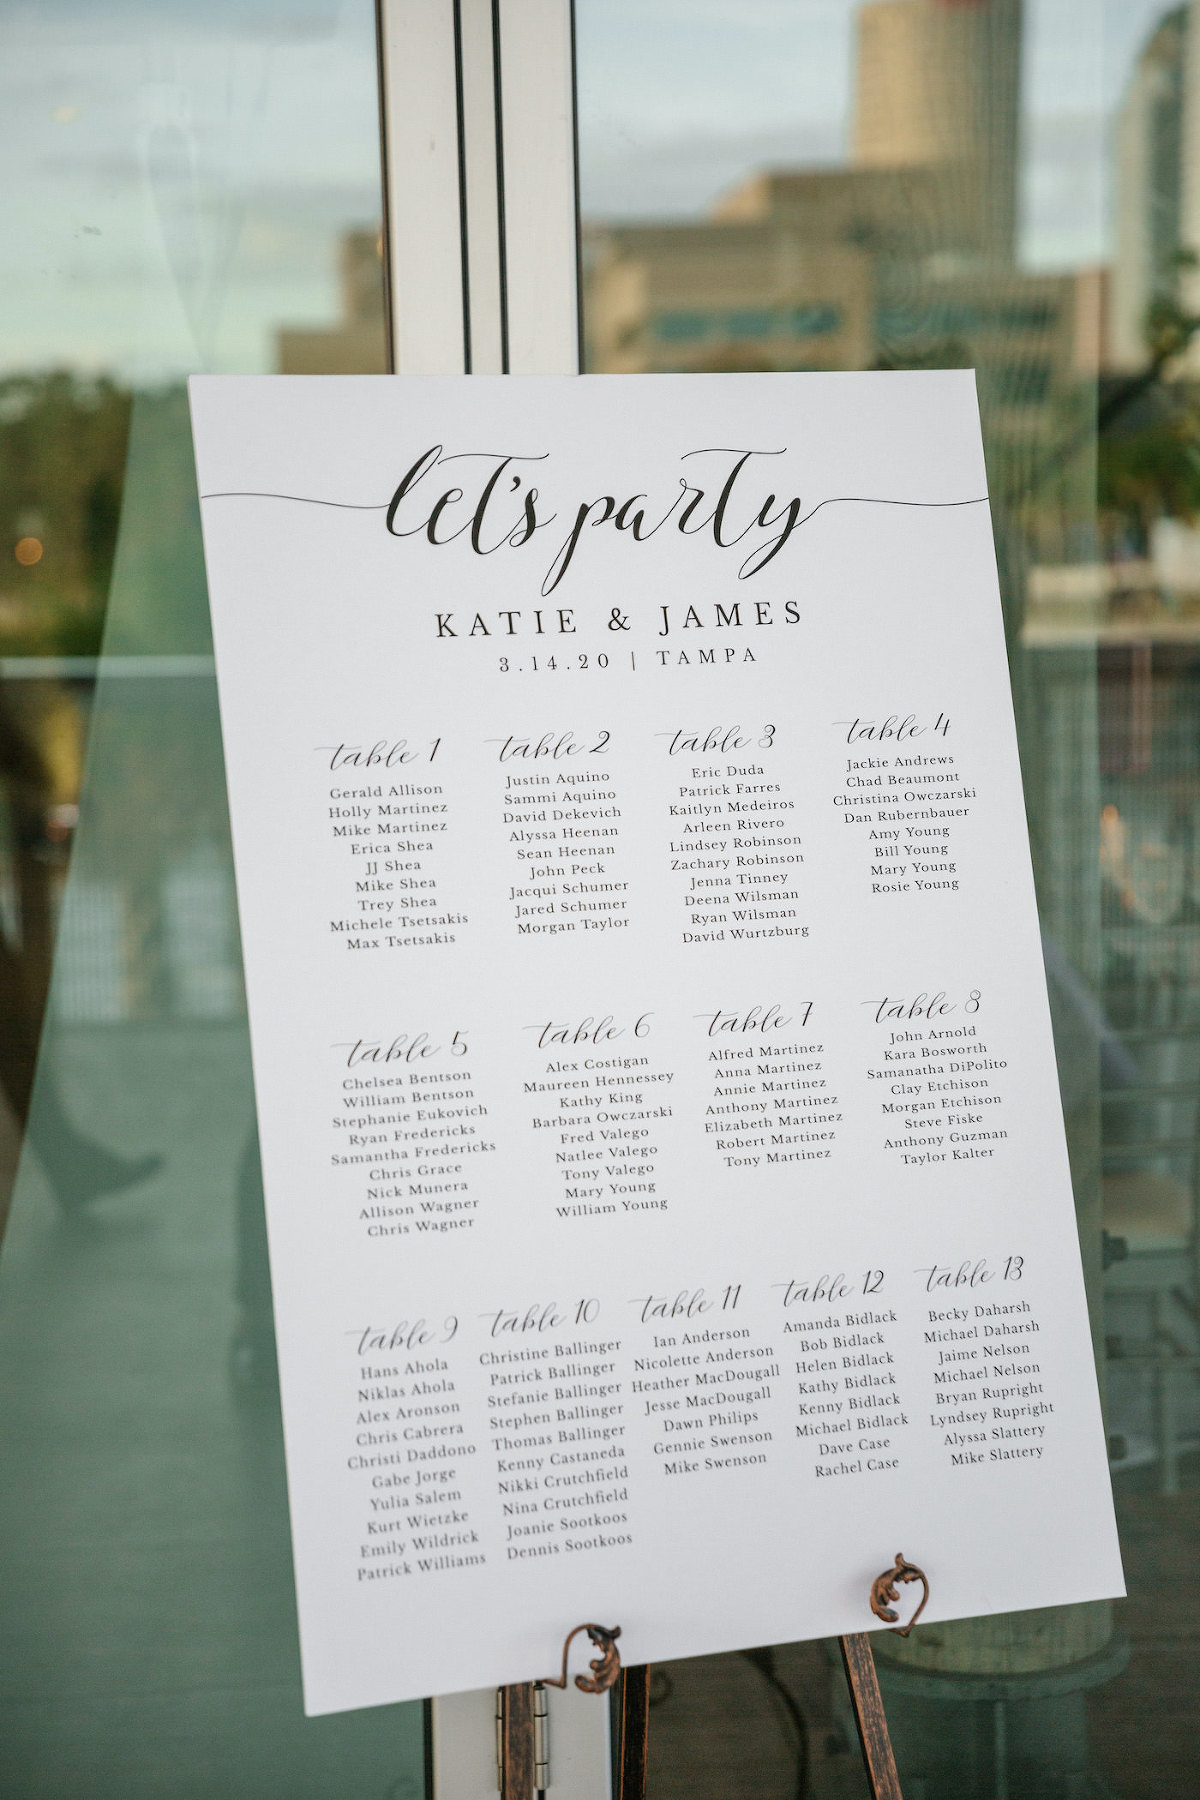 let's party
KATIE & JAMES
3.14.20 | TAMPA
table 1
Gerald Allison
Holly Martinez
Mike Martinez
Erica Shea
JJ Shea
Mike Shea
Trey Shea
Michele Tsetsakis
Max Tsetsakis
table 2
Justin Aquino
Sammi Aquino
David Dekevich
Alyssa Heenan
Sean Heenan
John Peck
Jacqui Schumer
Jared Schumer
Morgan Taylor
table 3
Eric Duda
Patrick Farres
Kaitlyn Medeiros
Arleen Rivero
Lindsey Robinson
Zachary Robinson
Jenna Tinney
Deena Wilsman
Ryan Wilsman
David Wurtzburg
table 4
Jackie Andrews
Chad Beaumont
Christina Owczarski
Dan Rubernbauer
Amy Young
Bill Young
Mary Young
Rosie Young
table 5
Chelsea Bentson
William Bentson
Stephanie Eukovich
Ryan Fredericks
Samantha Fredericks
Chris Grace
Nick Munera
Allison Wagner
Chris Wagner
table 6
Alex Costigan
Maureen Hennessey
Kathy King
Barbara Owczarski
Fred Valego
Natlee Valego
Tony Valego
Mary Young
William Young
table 7
Alfred Martinez
Anna Martinez
Annie Martinez
Anthony Martinez
Elizabeth Martinez
Robert Martinez
Tony Martinez
table 8
John Arnold
Kara Bosworth
Samanatha DiPolito
Clay Etchison
Morgan Etchison
Steve Fiske
Anthony Guzman
Taylor Kalter
table 9
Hans Ahola
Niklas Ahola
Alex Aronson
Chris Cabrera
Christi Daddono
Gabe Jorge
Yulia Salem
Kurt Wietzke
Emily Wildrick
Patrick Williams
table 10
Christine Ballinger
Patrick Ballinger
Stefanie Ballinger
Stephen Ballinger
Thomas Ballinger
Kenny Castaneda
Nikki Crutchfield
Nina Crutchfield
Joanie Sootkoos
Dennis Sootkoos
table 11
Ian Anderson
Nicolette Anderson
Heather MacDougall
Jesse MacDougall
Dawn Philips
Gennie Swenson
Mike Swenson
table 12
Amanda Bidlack
Bob Bidlack
Helen Bidlack
Kathy Bidlack
Kenny Bidlack
Michael Bidlack
Dave Case
Rachel Case
table 13
Becky Daharsh
Michael Daharsh
Jaime Nelson
Michael Nelson
Bryan Rupright
Lyndsey Rupright
Alyssa Slattery
Mike Slattery